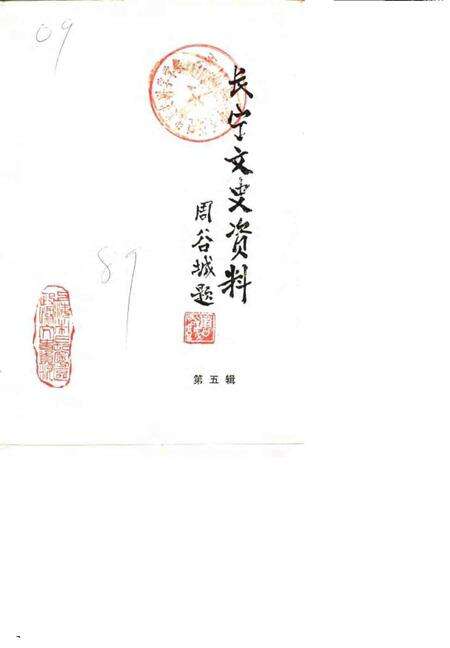 09
长宁文史资料
周谷城题
89
第五辑